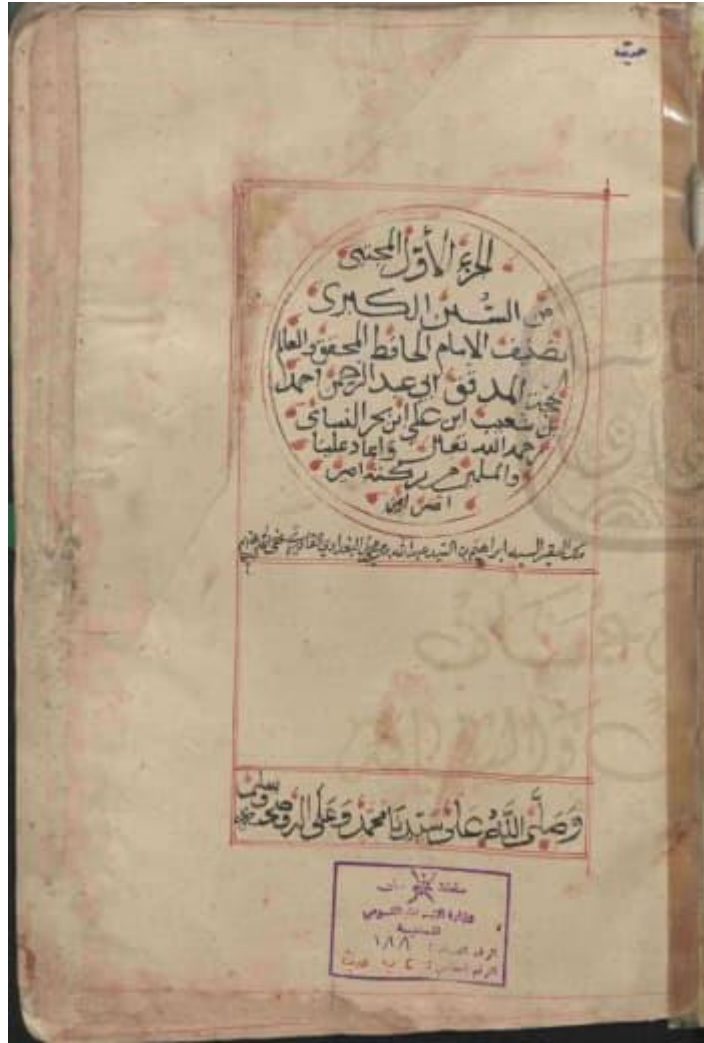 حديث
الجزء الأول المجتبى
من السنن الكبرى
تصنيف الامام الحافظ المحقق والعالم
المدقق ابي عبد الرحمن احمد
بن شعيب ابن علي ابن بحر النسائي
رحمه الله تعالى واعاد علينا
والمسلمين من بركته امين
امين امين
السيد ابراهيم بن السيد عبد الله البغدادي القادري عفى
وصلى الله على سيدنا محمد وعلى اله وصحبه وسلم
سلطنة عمان
وزارة التراث القومي
الرقم العام : ١٨٨
الرقم الخاص : ٢ ب حديث